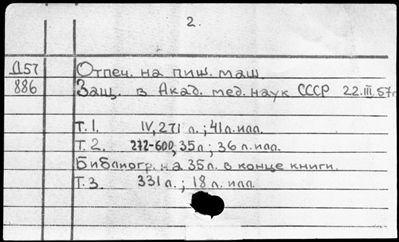 2.
Д57 Отпеч. на пиш. маш.
886 Защ. в Акад. мед. наук СССР 22.III.57г
Т. 1. IV, 271 л.; 41 л. илл.
Т. 2. 272-600, 35 л; 36 л. илл.
Библиогр. на 35 л. в конце книги.
Т. 3. 331 л.; 18 л. илл.